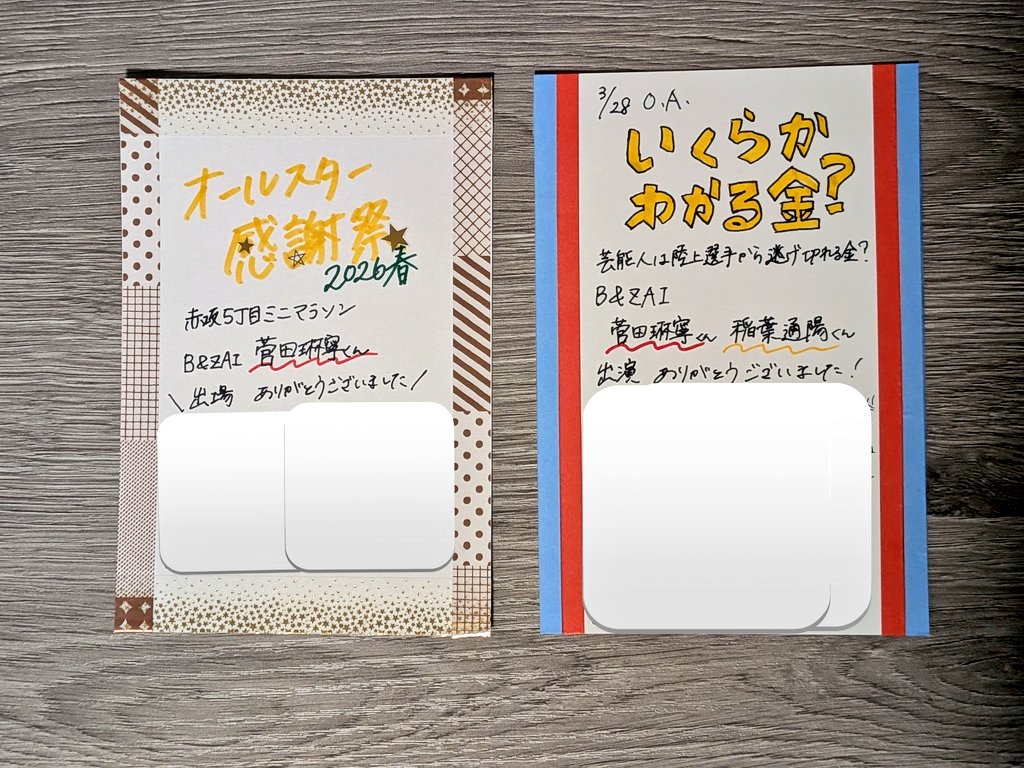 オールスター
感謝祭
2026春
赤坂5丁目ミニマラソン
B&ZAI 菅田琳寧くん
\ 出場 ありがとうございました /
3/28 O.A.
いくらか
わかる金?
芸能人は陸上選手から逃げ切れる金?
B&ZAI
菅田琳寧くん 稲葉通陽くん
出演 ありがとうございました!